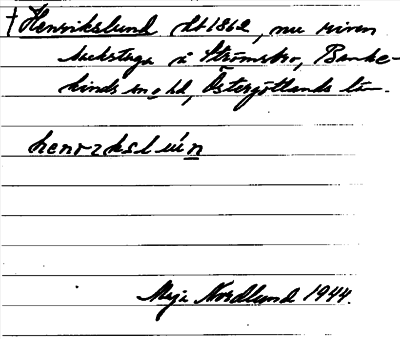 † Henrikslund Ht 1862, nu riven
backstuga i Strömsbro, Banke-
kinds sn o hd, Östergötlands län.
henrikslún
Maja Nordlund 1944.